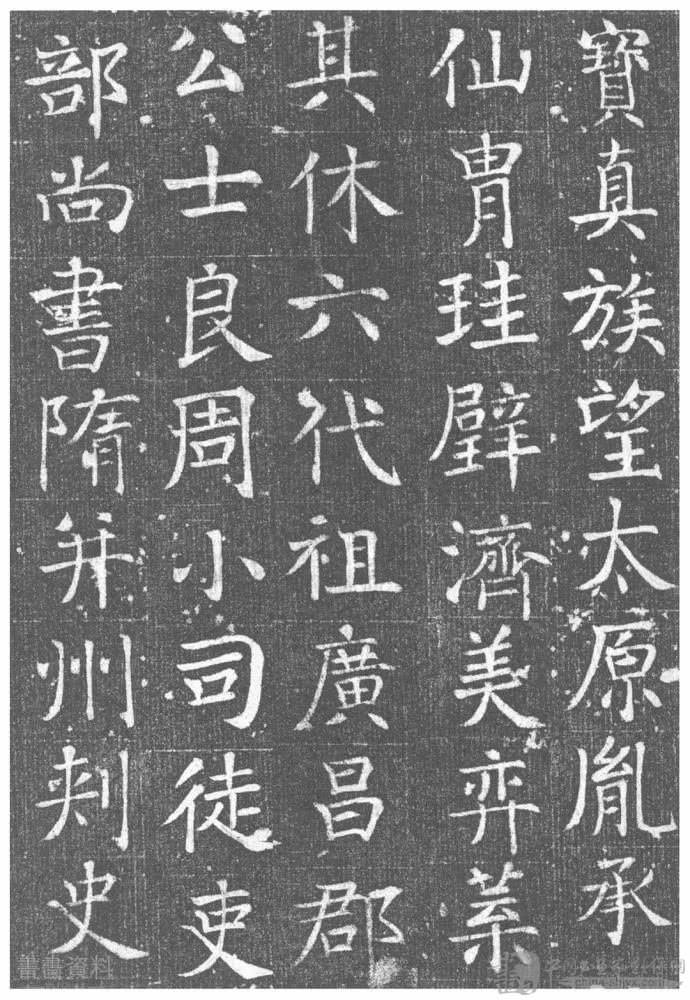 寶真族望太原胤承
仙胄珪璧濟美弈葉
其休六代祖廣昌郡
公士良周小司徒吏
部尚書隋并州刺史
書畫資料
china-shjyx.com